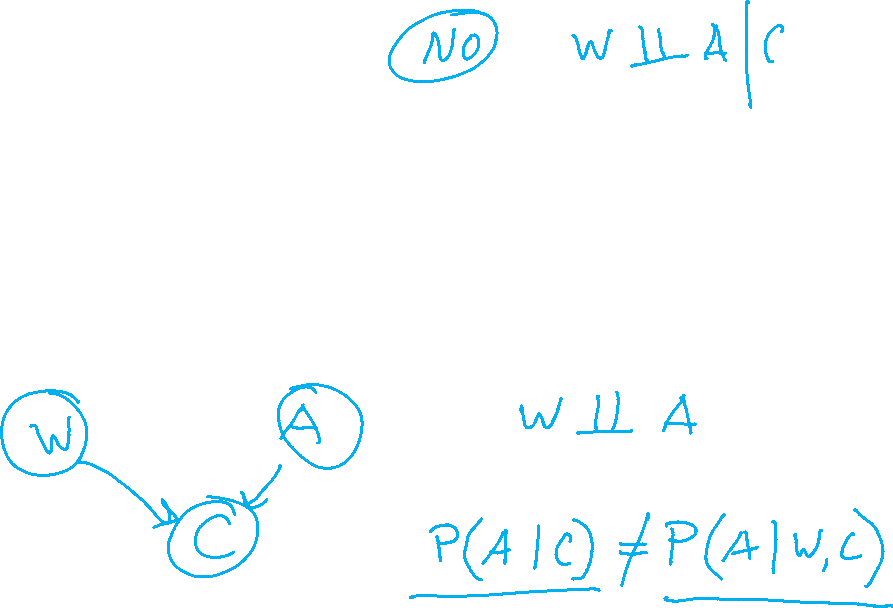 NO W ⫫ A | C
W A W ⫫ A
C P(A|C) ≠ P(A|W,C)